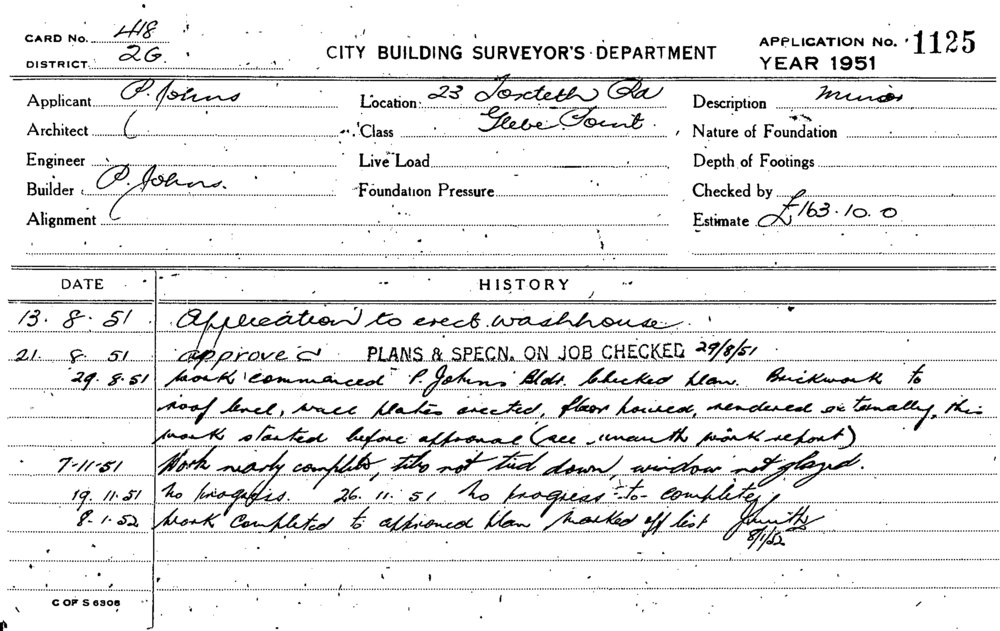 CARD No. 418
DISTRICT 2G
CITY BUILDING SURVEYOR'S DEPARTMENT
APPLICATION No. 1125
YEAR 1951
Applicant P. Johns
Location 23 Toxteth Rd
Description Minor
Architect
Class Glebe Point
Nature of Foundation
Engineer
Live Load
Depth of Footings
Builder P. Johns.
Foundation Pressure
Checked by
Alignment
Estimate £163.10.0
DATE HISTORY
13. 8. 51 Application to erect washhouse
21. 8. 51 approved PLANS & SPECN. ON JOB CHECKED 29/8/51
29. 8. 51 work commenced P. Johns Bldr. Checked plan. Brickwork to
roof level, wall plates erected, floor poured, rendered externally, this
work started before approval (see unauth work report)
7-11-51 Work nearly complete, tiles not tied down, window not glazed.
19. 11. 51 No progress. 26. 11. 51 No progress to complete,
8-1-52 work completed to approved plan marked off list
8/1/52
C OF S 6306